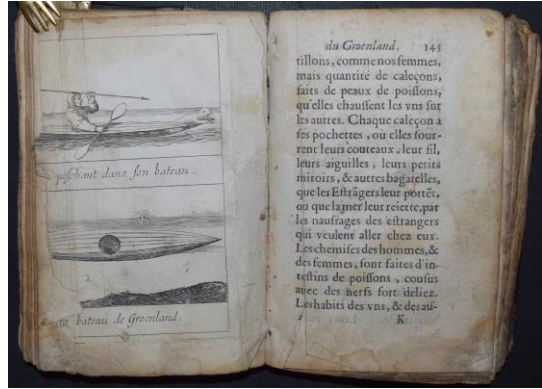 peschant dans son bateau.
bateau de Groenland.
du Groenland. 145
tillons, comme nos femmes,
mais quantité de caleçons,
faits de peaux de poissons,
qu'elles chaussent les vns sur
les autres. Chaque caleçon a
ses pochettes, où elles four-
rent leurs couteaux, leur fil,
leurs aiguilles, leurs petits
miroirs, & autres bagatelles,
que les Estrãgers leur portẽt,
ou que la mer leur reiette, par
les naufrages des estrangers
qui veulent aller chez eux.
Les chemises des hommes, &
des femmes, sont faites d'in-
testins de poissons, cousus
auec des nerfs fort deliez.
Les habits des vns, & des au-
K